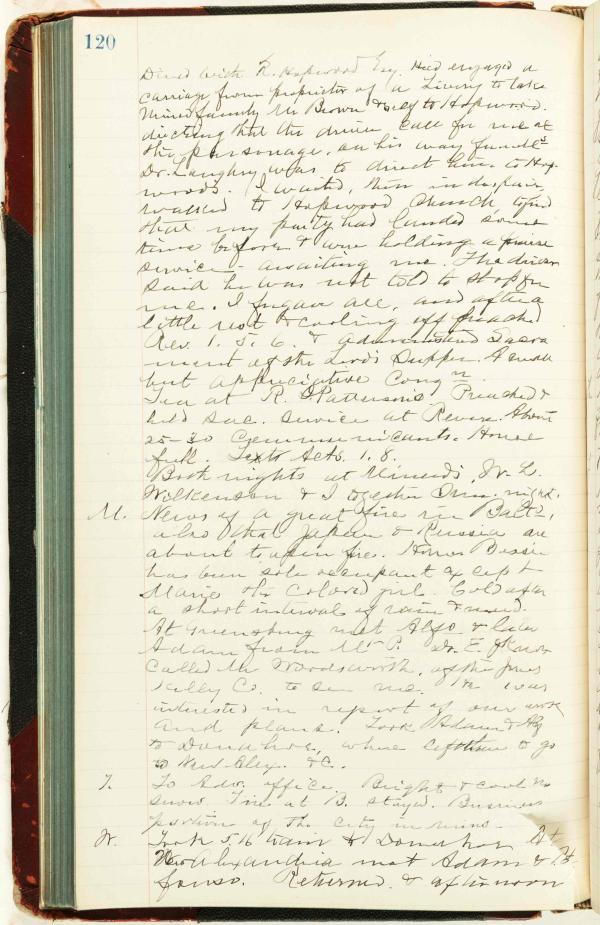 120
Dined with R. Hopwood Esq. Had engaged a
carriage from proprietor of a Livery to take
Minerd family Mr Brown & self to Hopwood.
directing that the driver call for me at
the parsonage, on his way
Dr. Laughry was to direct him to Hop-
wood. I waited, then in despair,
walked to Hopwood Church to find
that my party had landed some
time before & were holding a praise
service - awaiting me. The driver
said he was not told to stop for
me. I forgave all, and after a
little rest & cooling off preached
Rev. 1. 5. 6. & administered Sacra
ment of the Lord's Supper. A small
but appreciative Congn.
Tea at R. Patterson's Preached &
held sac. service at Revere. About
25-30 Communicants. House
full. Text Acts. 1. 8.
Both nights at Minerd's, W. L.
Wilkenson & I together Mon. night.
M. News of a great fire in Balto,
also that Japan & Russia are
about to open fire. Home Bessie
has been sole occupant except
Marie the Colored girl. Cold after
a short interval of rain & mud.
At Greensburg met Alfo & later
Adam from Mt P. Dr. E.
called Mr Wordsworth, of the Jones
Kelly Co. to see me. He was
interested in report of our work
and plans. Took Adam & Alf
to Donahoe, where left them to go
to New Alex. &c.
T. To Adv. office. Bright & cool no
snow. Fire at B. stayed. Business
portion of the city in ruins.
W. Took 5.16 train to Donahoe At
New Alexandria met Adam & Al-
fonso. Returned. & afternoon